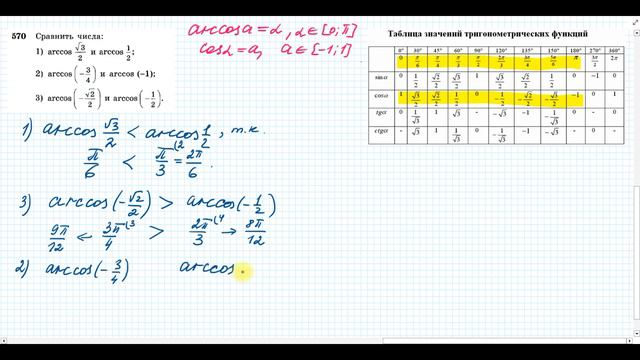 570 Сравнить числа:
1) arccos √3/2 и arccos 1/2;
2) arccos (−3/4) и arccos (−1);
3) arccos (−√2/2) и arccos (−1/2).
arccos a = α, α ∈ [0; π]
cos α = a, a ∈ [-1; 1]
Таблица значений тригонометрических функций
0° 30° 45° 60° 90° 120° 135° 150° 180° 270° 360°
0 π/6 π/4 π/3 π/2 2π/3 3π/4 5π/6 π 3π/2 2π
sinα 0 1/2 √2/2 √3/2 1 √3/2 √2/2 1/2 0 −1 0
cosα 1 √3/2 √2/2 1/2 0 −1/2 −√2/2 −√3/2 −1 0 1
tgα 0 1/√3 1 √3 - −√3 −1 −1/√3 0 - 0
ctgα - √3 1 1/√3 0 −1/√3 −1 −√3 - 0 -
1) arccos √3/2 < arccos 1/2, т.к.
π/6 < π/3 (2 = 2π/6
3) arccos(−√2/2) > arccos(−1/2)
9π/12 ← 3π/4 (3 > 2π/3 (4 → 8π/12
2) arccos(−3/4) arccos